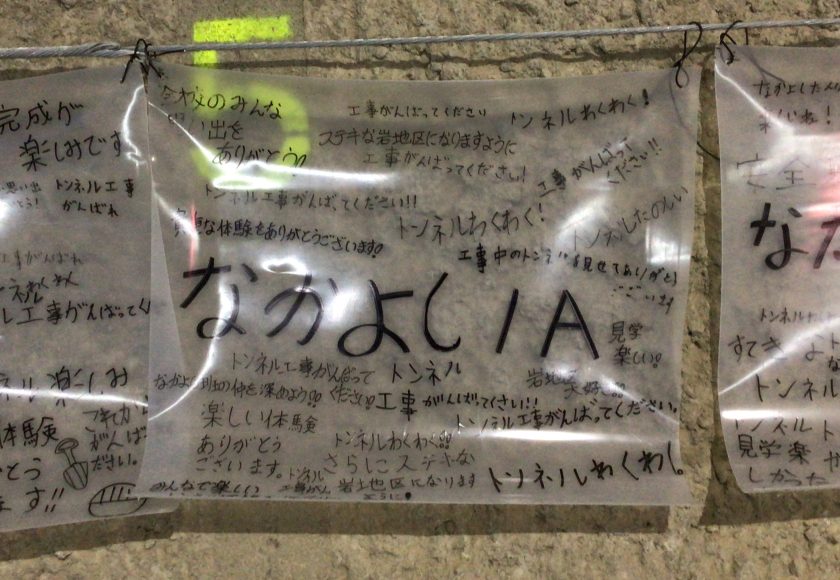 完成が
楽しみです
思い出
トンネル工事
がんばれ
工事がんばれ
工事がんばって
楽しみ
体験
これから
がんば
ださい。
ます!!
全校のみんな
思い出を
ありがとう!
工事がんばってください
トンネルわくわく!
ステキな岩地区になりますように
工事がんばってください!
工事がんばって
ください!!
トンネル工事がんばってください!!
貴重な体験をありがとうございます!
トンネルわくわく!
トンネルたのしい
工事中のトンネルを見せてありがとう
ございます
なかよし1A
見学
楽しい!
トンネル工事がんばって
ください!
トンネル
なかよし班の仲を深めよう!!
工事がんばってくさい!!
岩地区
大好き!!
トンネル工事がんばってください。
楽しい体験
ありがとう
ございます。
トンネルわくわく!!
さらにステキな
岩地区になります
ように!
トンネル
工事がん
みんなで楽しい
トンネルわくわく。
なかよし
安全
なか
すてき
トンネル
見学楽
しかった